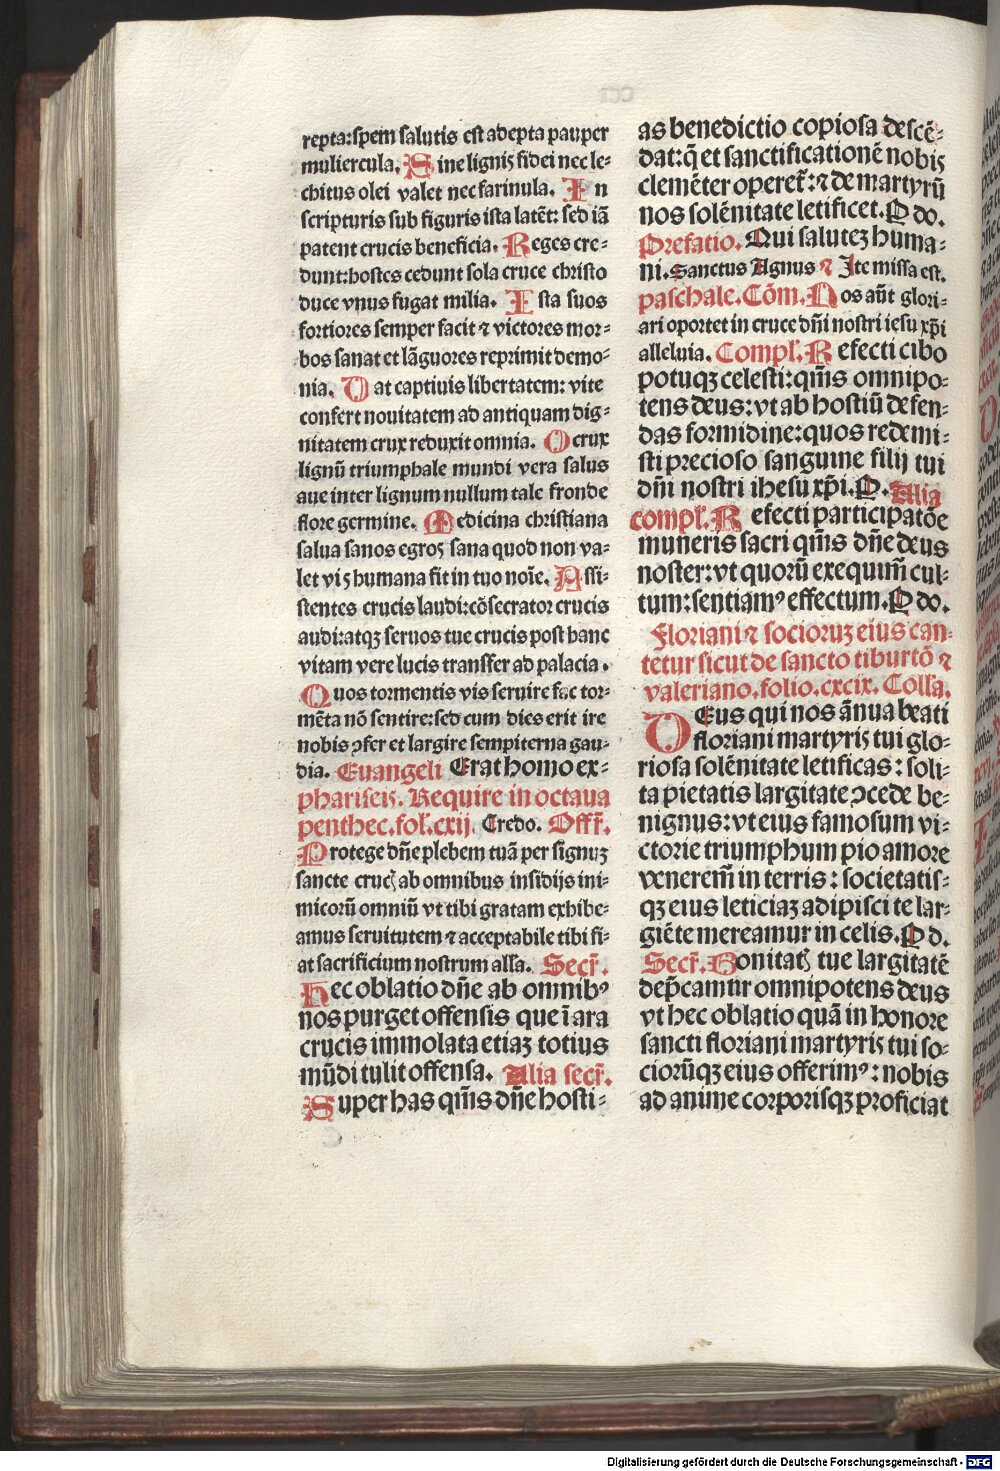 repta:spem salutis est adepta pauper
muliercula. Sine lignis fidei nec le⸗
chitus olei valet nec farinula. In
scripturis sub figuris ista latēt: sed iā
patent crucis beneficia. Reges cre⸗
dunt:hostes cedunt sola cruce christo
duce vnus fugat milia. Ista suos
fortiores semper facit ⁊ victores mor⸗
bos sanat et lāguores reprimit demo⸗
nia. Dat captiuis libertatem: vite
confert nouitatem ad antiquam dig⸗
nitatem crux reduxit omnia. O crux
lignū triumphale mundi vera salus
aue inter lignum nullum tale fronde
flore germine. Medicina christiana
salua sanos egroꝫ sana quod non va⸗
let viꝫ humana fit in tuo noīe. Assi⸗
stentes crucis laudi:cōsecrator crucis
audi:atqꝫ seruos tue crucis post hanc
vitam vere lucis transfer ad palacia.
Quos tormentis vis seruire fac tor⸗
mēta nō sentire:sed cum dies erit ire
nobis ꝯfer et largire sempiterna gau⸗
dia. Euangeli Erat homo ex⸗
phariseis. Require in octaua
penthec.fol̄.cxij. Credo. Offr̄.
Protege dn̄e plebem tuā per signuꝫ
sancte cruc̄ ab omnibus insidijs ini⸗
micorū omniū vt tibi gratam exhibe⸗
amus seruitutem ⁊ acceptabile tibi fi⸗
at sacrificium nostrum alla. Secr̄.
Hec oblatio dn̄e ab omnibꝰ
nos purget offensis que ī ara
crucis immolata etiaꝫ totius
mūdi tulit offensa. Alia secr̄.
Super has qm̄s dn̄e hosti⸗
as benedictio copiosa descē⸗
dat:q̄ et sanctificationē nobis
clemēter operet̄:⁊ de martyrū
nos solēnitate letificet. P do.
Prefatio. Qui salutez huma⸗
ni. Sanctus Agnus ⁊ Ite missa est.
paschale. Cōm. Nos aūt glori⸗
ari oportet in cruce dn̄i nostri iesu xp̄i
alleluia. Compl̄. Refecti cibo
potuqꝫ celesti:qm̄s omnipo⸗
tens deus:vt ab hostiū defen⸗
das formidine:quos redemi⸗
sti precioso sanguine filij tui
dn̄i nostri ihesu xp̄i. P. Alia
compl̄. Refecti participatōe
muneris sacri qm̄s dn̄e deus
noster:vt quorū exequim̄ cul⸗
tum:sentiamꝰ effectum. P do.
Floriani ⁊ socioruꝫ eius can⸗
tetur sicut de sancto tiburtō ⁊
valeriano.folio.cxcix. Coll̄a.
DEus qui nos ānua beati
floriani martyris tui glo⸗
riosa solēnitate letificas: soli⸗
ta pietatis largitate ꝯcede be⸗
nignus:vt eius famosum vi⸗
ctorie triumphum pio amore
venerem̄ in terris: societatis⸗
qꝫ eius leticiaꝫ adipisci te lar⸗
giēte mereamur in celis. P d.
Secr̄. Bonitat̄ tue largitatē
dep̄camur omnipotens deus
vt hec oblatio quā in honore
sancti floriani martyris tui so⸗
ciorūqꝫ eius offerimꝰ: nobis
ad anime corporisqꝫ proficiat
Digitalisierung gefördert durch die Deutsche Forschungsgemeinschaft - DFG